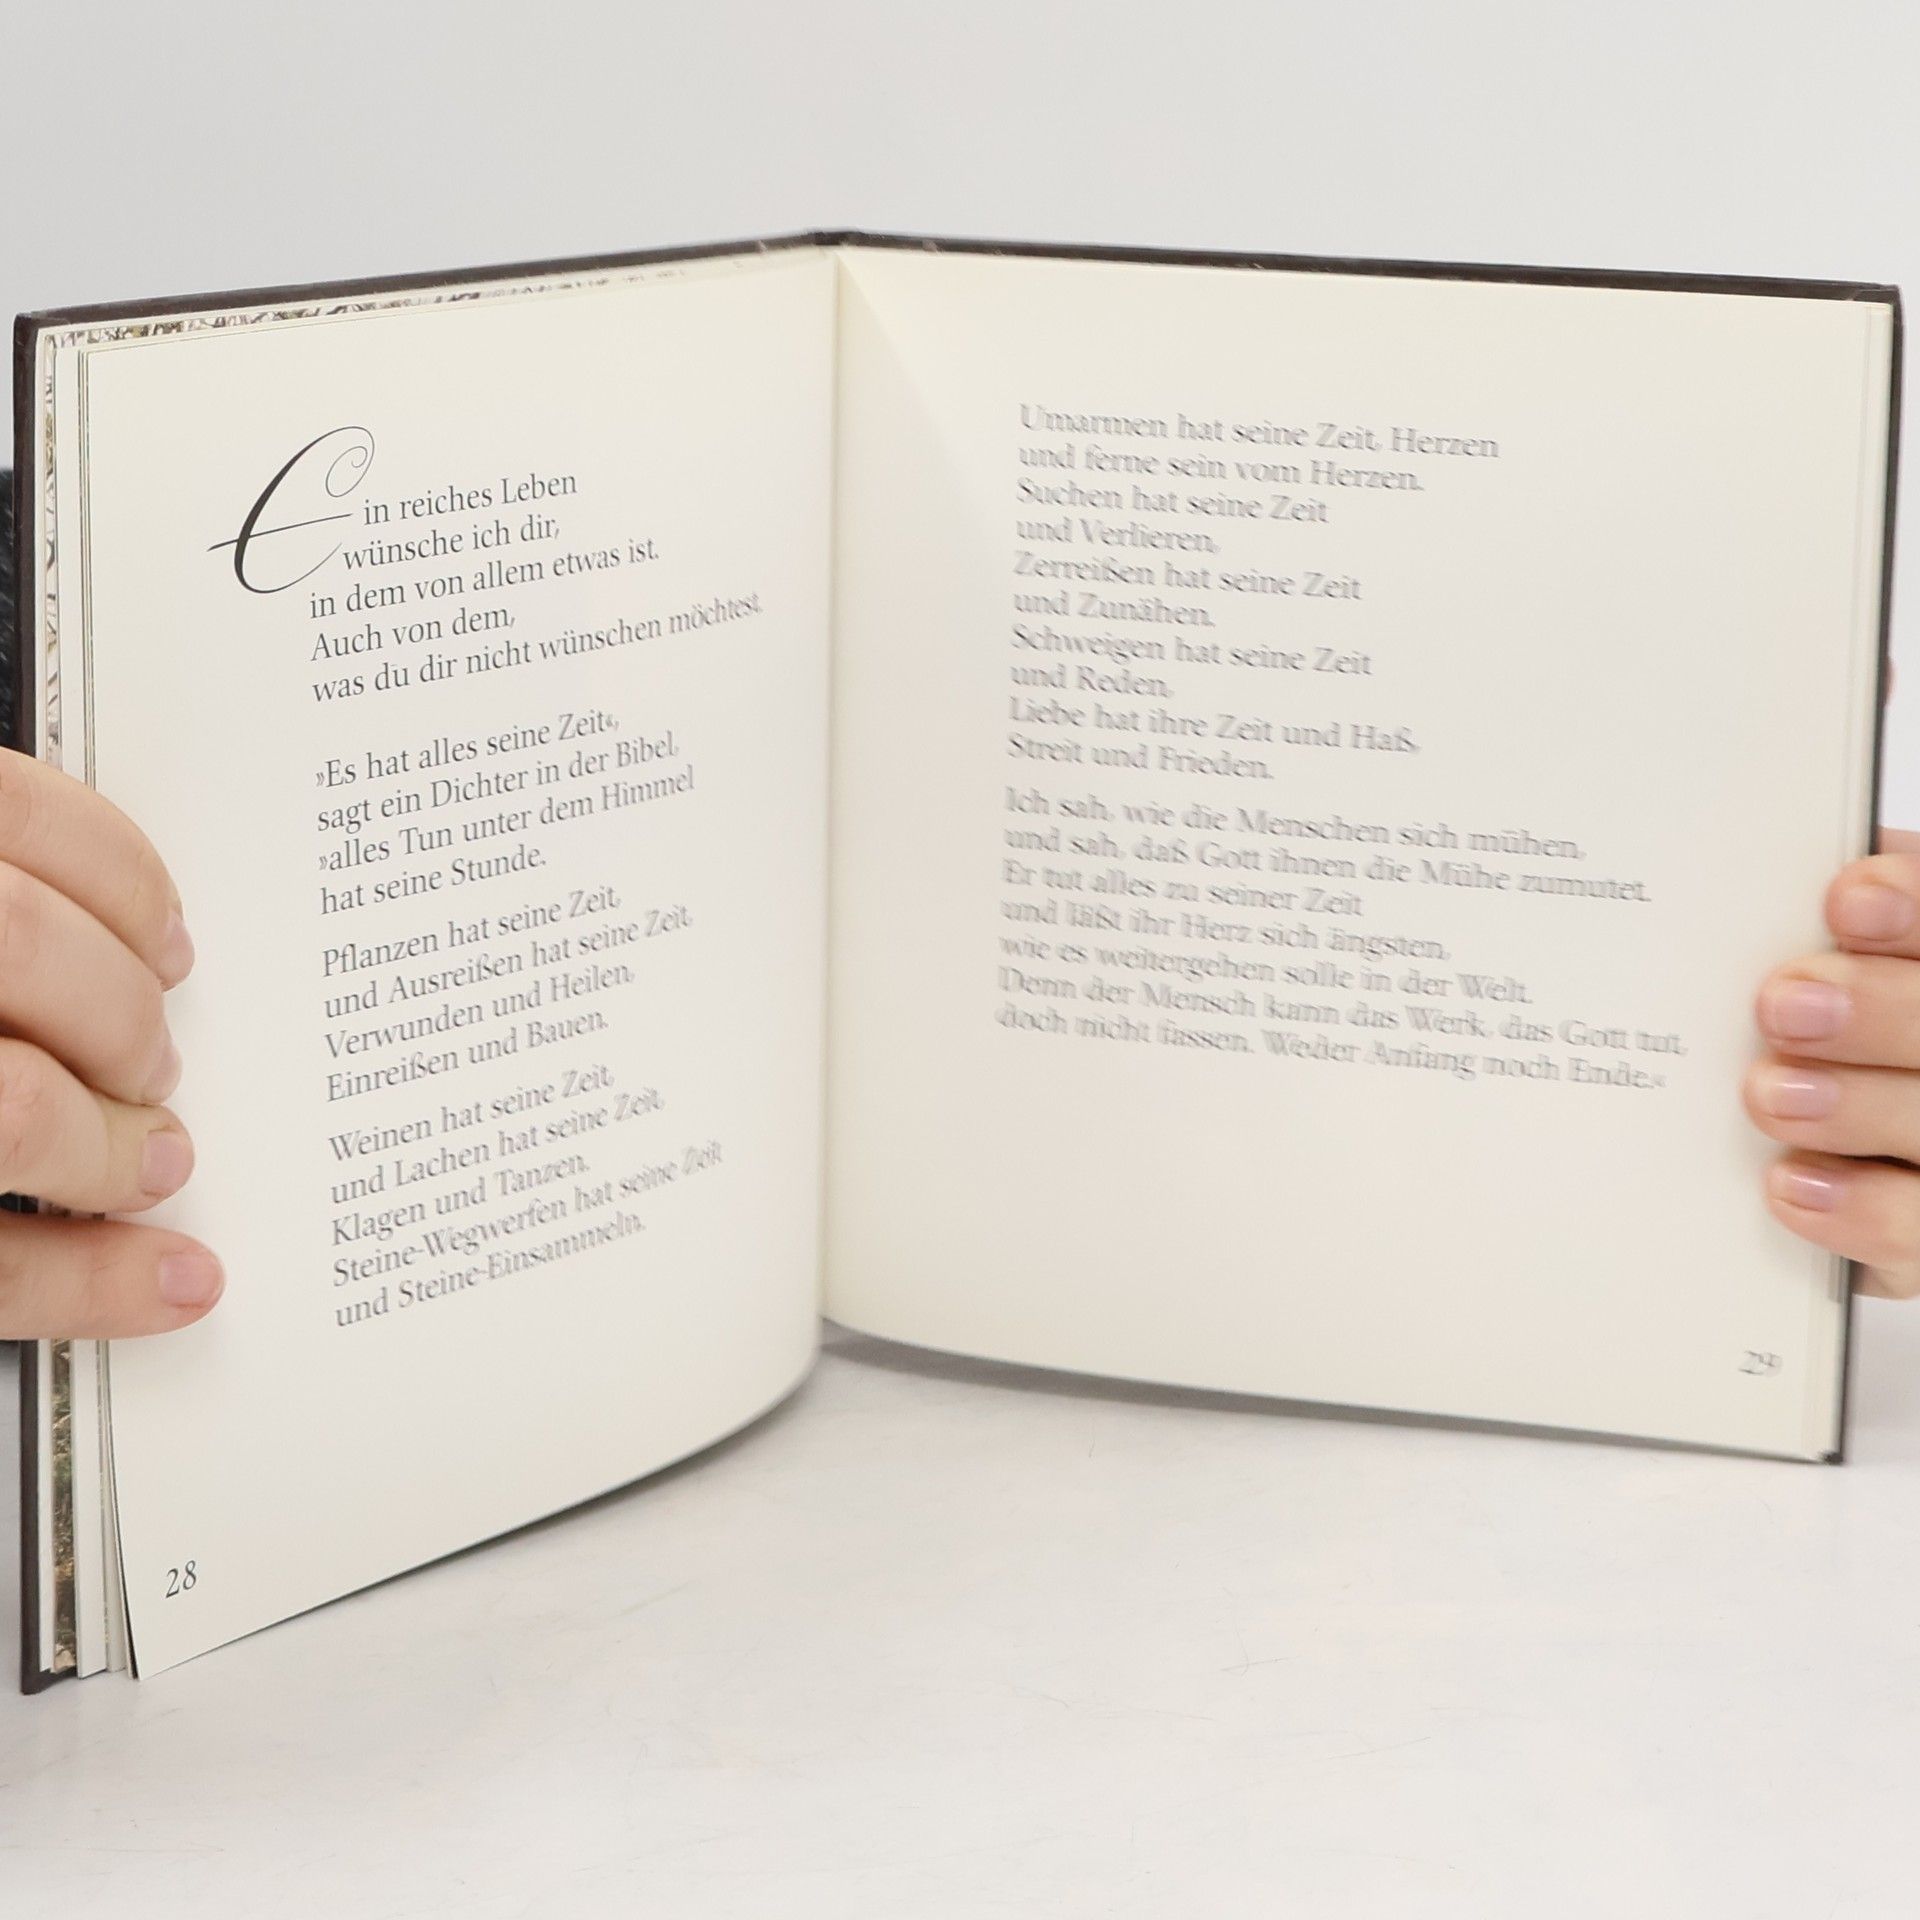 Ein reiches Leben
wünsche ich dir,
in dem von allem etwas ist.
Auch von dem,
was du dir nicht wünschen möchtest.
»Es hat alles seine Zeit«,
sagt ein Dichter in der Bibel,
»alles Tun unter dem Himmel
hat seine Stunde.
Pflanzen hat seine Zeit,
und Ausreißen hat seine Zeit,
Verwunden und Heilen,
Einreißen und Bauen.
Weinen hat seine Zeit,
und Lachen hat seine Zeit,
Klagen und Tanzen.
Steine-Wegwerfen hat seine Zeit
und Steine-Einsammeln.
28
Umarmen hat seine Zeit, Herzen
und ferne sein vom Herzen.
Suchen hat seine Zeit
und Verlieren,
Zerreißen hat seine Zeit
und Zunähen.
Schweigen hat seine Zeit
und Reden,
Liebe hat ihre Zeit und Haß,
Streit und Frieden.
Ich sah, wie die Menschen sich mühen,
und sah, daß Gott ihnen die Mühe zumutet.
Er tut alles zu seiner Zeit
und läßt ihr Herz sich ängsten,
wie es weitergehen solle in der Welt.
Denn der Mensch kann das Werk, das Gott tut,
doch nicht fassen. Weder Anfang noch Ende.«
29